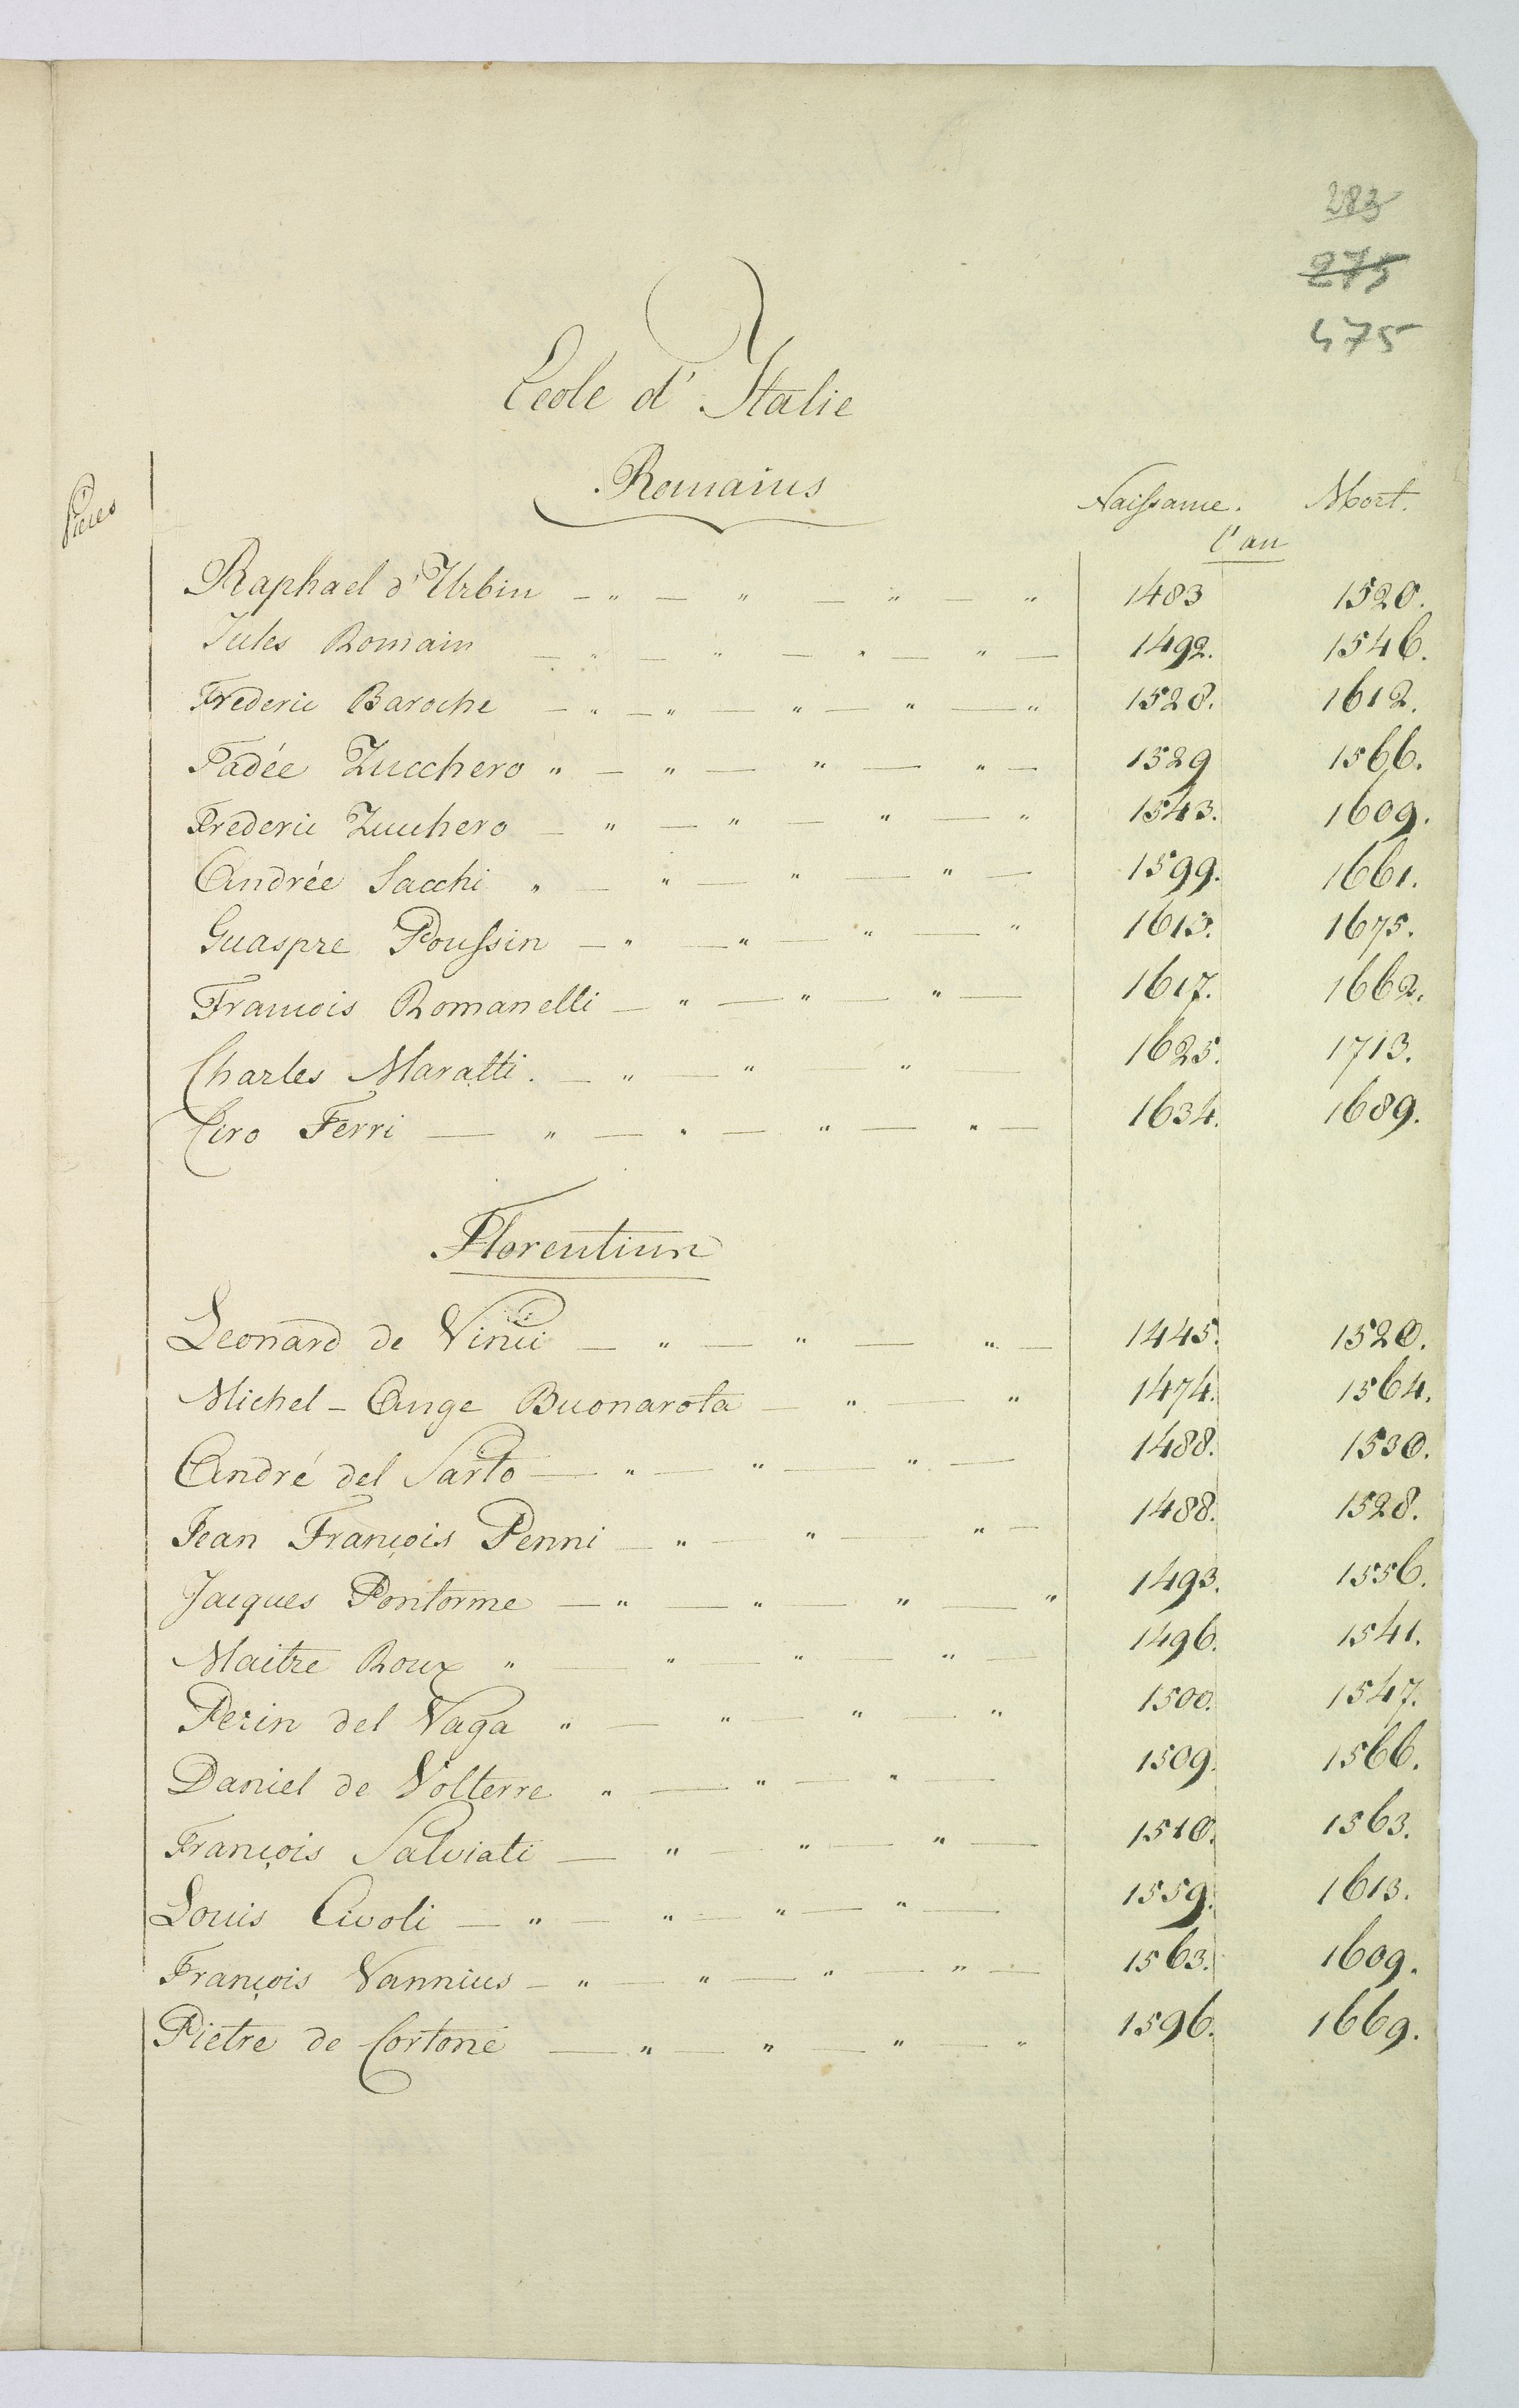 283
275
475
Ecole d'Italie
Romains
Pièces
Naissance. Mort.
l'an
Raphael d'Urbin – " – " – " – " 1483 1520.
Jules Romain – " – " – " – " – 1492. 1546.
Frederic Baroche – " – " – " – " – " 1528. 1612.
Tadée Zucchero " – " – " – " – 1529 1566.
Frederic Zucchero – " – " – " – " 1543. 1609.
Andrée Sacchi " – " – " – " – 1599. 1661.
Guaspre Poussin – " – " – " – " 1613. 1675.
Francois Romanelli – " – " – " – 1617. 1662.
Charles Maratti. – " – " " – 1625. 1713.
Ciro Ferri – " – " – " – " – 1634. 1689.
Florentins
Leonard de Vinci – " – " – " – 1445. 1520.
Michel-Ange Buonarota – " – " 1474. 1564.
André del Sarto – " – " – " – 1488. 1530.
Jean François Penni – " – " – " – 1488. 1528.
Jacques Pontorme – " – " – " – " 1493. 1556.
Maitre Roux " – " – " – " – 1496. 1541.
Perin del Vaga " – " – " – " 1500. 1547.
Daniel de Volterre " – " – " – 1509. 1566.
François Salviati – " – " – " – 1510. 1563.
Louis Civoli – " – " – " – " – 1559. 1613.
François Vannius – " – " – " – " – 1563. 1609.
Pietre de Cortone – " – " – " – " 1596. 1669.